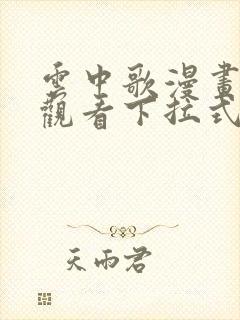 雲中歌漫畫
觀看下拉式
天雨君